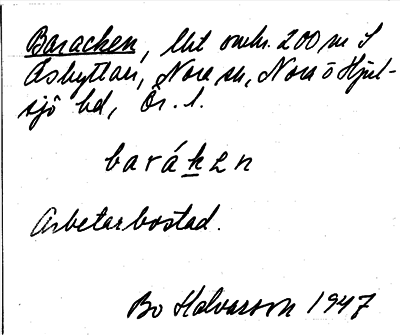 Baracken, lht omkr. 200 m S
Åshyttan, Nora sn, Nora o Hjul-
sjö bd, Ör. l.
baráken
Arbetarbostad.
Bo Halvarson 1947